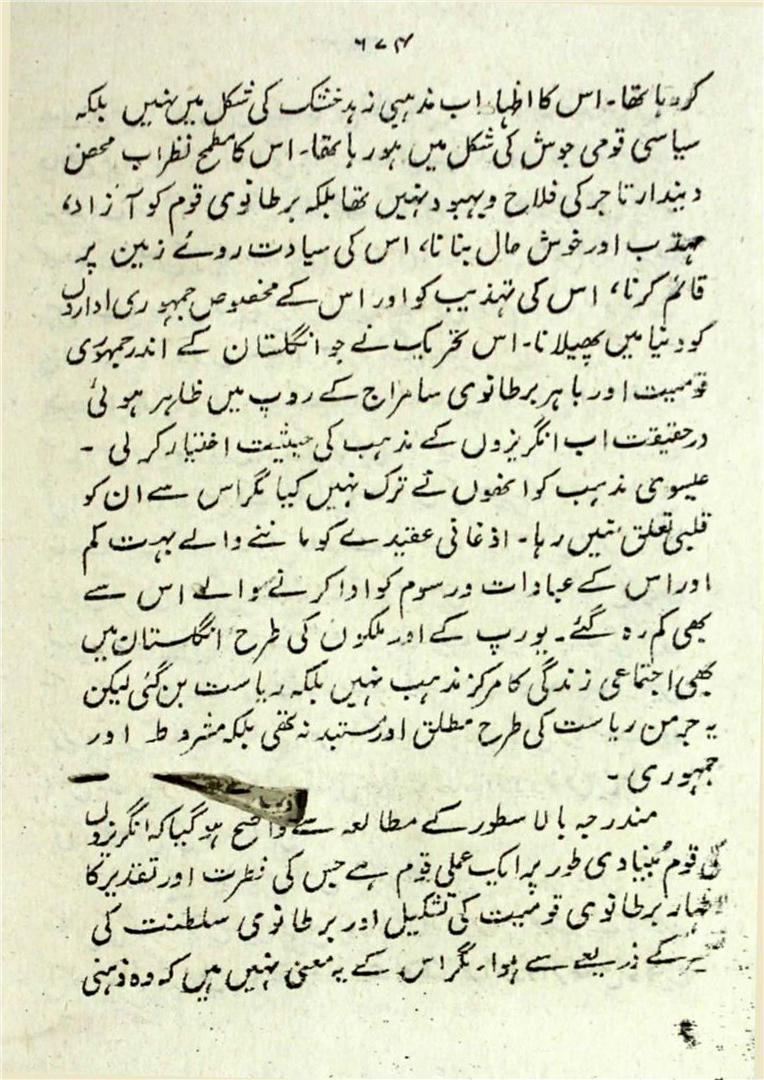 ۶۷۴
کر رہا تھا۔ اس کا اظہار اب مذہبی زہد خشک کی شکل میں نہیں بلکہ
سیاسی قومی جوش کی شکل میں ہو رہا تھا۔ اس کا مطمح نظر اب محض
دیندار تاجر کی فلاح وبہبود نہیں تھا بلکہ برطانوی قوم کو آزاد،
مہذب اور خوش حال بنانا، اس کی سیادت روئے زمین پر
قائم کرنا، اس کی تہذیب کو اور اس کے مخصوص جمہوری اداروں
کو دنیا میں پھیلانا۔ اس تحریک نے جو انگلستان کے اندر جمہوری
قومیت اور باہر برطانوی سامراج کے روپ میں ظاہر ہوئی
درحقیقت اب انگریزوں کے مذہب کی حیثیت اختیار کر لی ۔
عیسوی مذہب کو انھوں نے ترک نہیں کیا مگر اس سے ان کو
قلبی تعلق نہیں رہا۔ اذعانی عقیدے کو ماننے والے بہت کم
اور اس کے عبادات ورسوم کو ادا کرنے والے اس سے
بھی کم رہ گئے۔ یورپ کے اور ملکوں کی طرح انگلستان میں
بھی اجتماعی زندگی کا مرکز مذہب نہیں بلکہ ریاست بن گئی لیکن
یہ جرمن ریاست کی طرح مطلق اور مستبد نہ تھی بلکہ مشروط اور
جمہوری ۔
مندرجہ بالا سطور کے مطالعہ سے واضح ہو گیا کہ انگریزوں
کی قوم بُنیادی طور پر ایک عملی قوم ہے جس کی فطرت اور تقدیر کا
اظہار برطانوی قومیت کی تشکیل اور برطانوی سلطنت کی
تعمیر کے ذریعے سے ہوا۔ مگر اس کے یہ معنی نہیں ہیں کہ وہ ذہنی